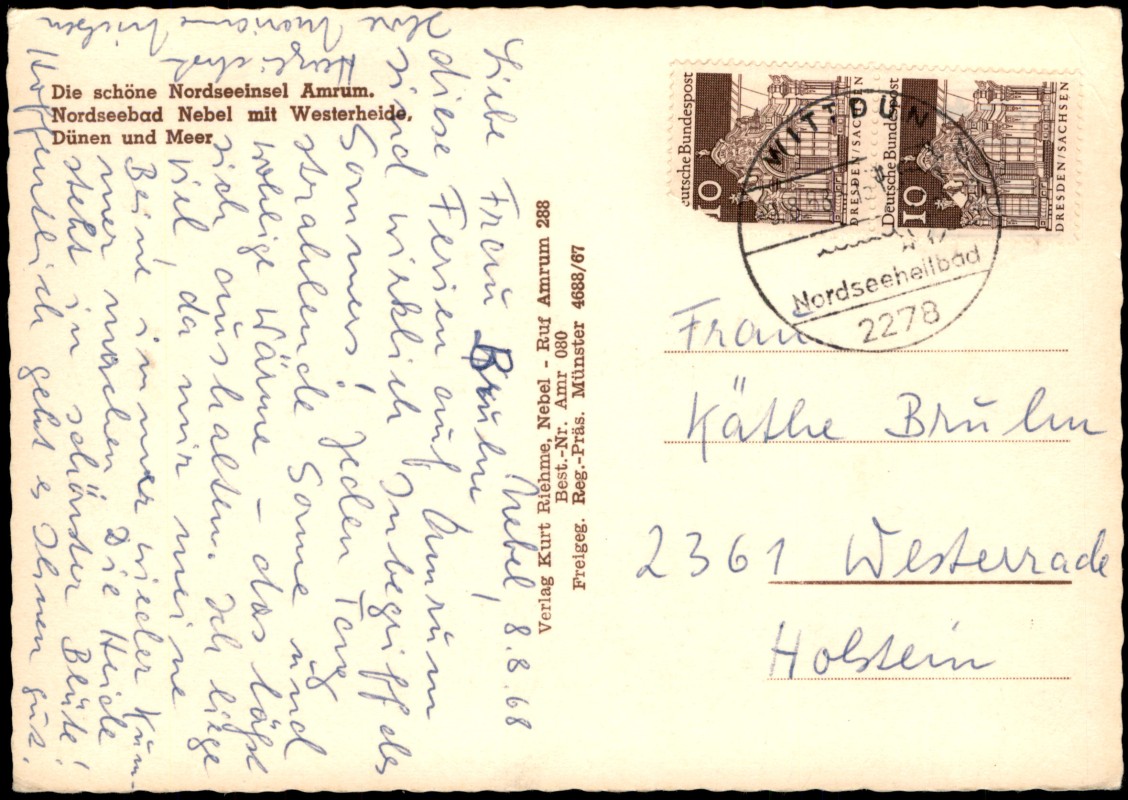 Die schöne Nordseeinsel Amrum.
Nordseebad Nebel mit Westerheide,
Dünen und Meer
Nebel, 8.8.68
Liebe Frau Bruhn!
diese Ferien auf Amrum
sind wirklich Inbegriff des
Sommers! Jeden Tag
strahlende Sonne und
wohlige Wärme – das läßt
sich aushalten. Ich liege
viel, da mir meine
Beine immer wieder Kum-
mer machen. Die Heide
steht in schönster Blüte!
Hoffentlich geht es Ihnen gut.
Herzlichst
Ihre Marianne Nielsen
Verlag Kurt Riehme, Nebel - Ruf Amrum 288
Best.-Nr. Amr 080
Freigeg. Reg.-Präs. Münster 4688/67
Deutsche Bundespost
10
DRESDEN/SACHSEN
Deutsche Bundespost
10
DRESDEN/SACHSEN
WITTDÜN
Nordseeheilbad
2278
Frau
Käthe Bruhn
2361 Westerrade
Holstein